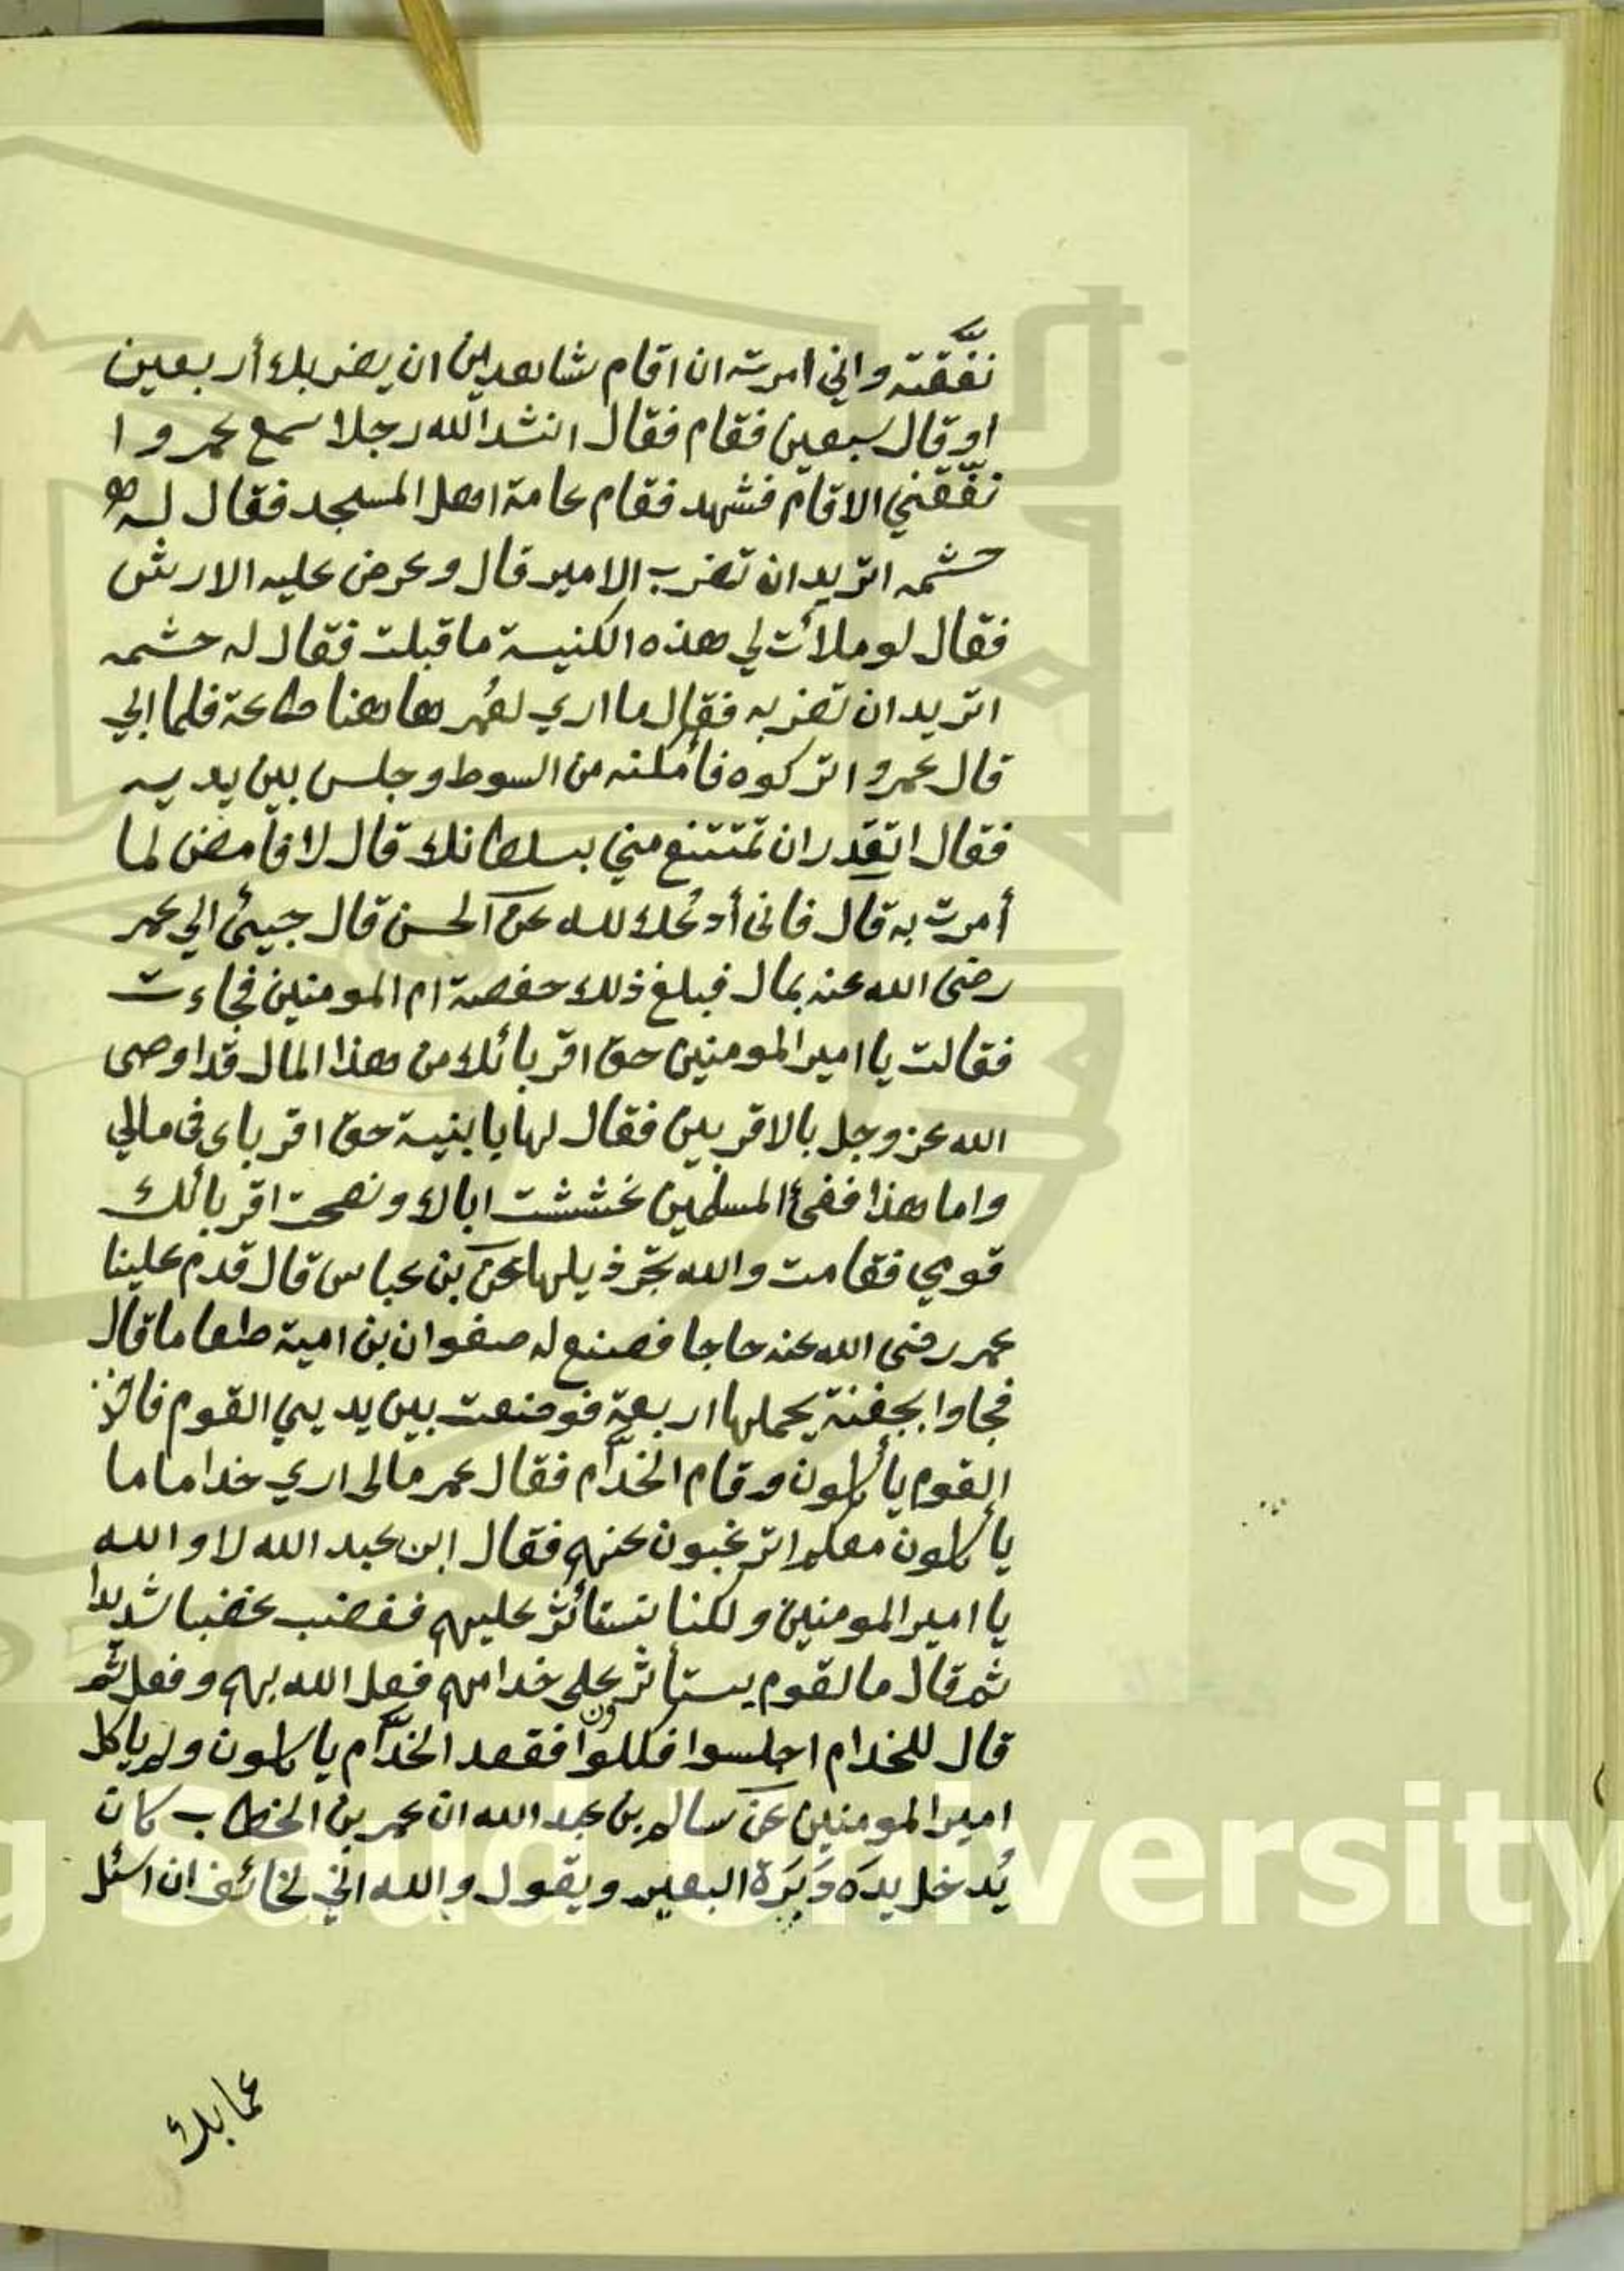 نفَّقته واني امرته ان اقام شاهدين ان يضربك أربعين
او قال سبعين فقام فقال انشد الله رجلا سمع عمروا
نفّقني الا قام فشهد فقام عامة اهل المسجد فقال له
حشمه اتريد ان تضرب الامير قال وعرض عليه الارش
فقال لو ملأت لي هذه الكنيسة ما قبلت فقال له حشمه
اتريد ان تضربه فقال ما اري لعُمر هاهنا طاعة فلما ابي
قال عمرو اتركوه فأمكنه من السوط وجلس بين يديه
فقال اتقدر ان تمتنع مني بسلطانك قال لا فامض لما
أمرت به قال فاني أدعُك لله عن الحسن قال جيئ الي عمر
رضى الله عنه بمال فبلغ ذلك حفصة ام المومنين فجاءت
فقالت يا امير المومنين حق اقربائك من هذا المال قد اوصى
الله عز وجل بالاقربين فقال لها يا بنية حق اقرباى في مالي
واما هذا ففئ المسلمين غششت اباك ونصحت اقربائك
قومي فقامت والله تجّر ذيلها عن بن عباس قال قدم علينا
عمر رضى الله عنه حاجا فصنع له صفوان بن امية طعاما قال
فجاوا بجفنة يحملها اربعة فوضعت بين يديي القوم فاخذ
القوم يأكلون وقام الخدّام فقال عمر مالى اري خداما ما
يأكلون معكم اترغبون عنهم فقال ابن عبد الله لا والله
يا امير المومنين ولكنا نستأثر عليهم فغضب غضبا شديدا
ثم قال ما لقوم يستأثرون على خدامهم فعل الله بهم وفعل ثم
قال للخدام اجلسوا فكلوا فقعد الخدّام ياكلون ولم ياكل
امير المومنين عن سالم بن عبد الله ان عمر بن الخطاب كان
يُدخل يده دَبَرَة البعير ويقول والله اني لخائف ان اسئل
عما بك
King Saud University